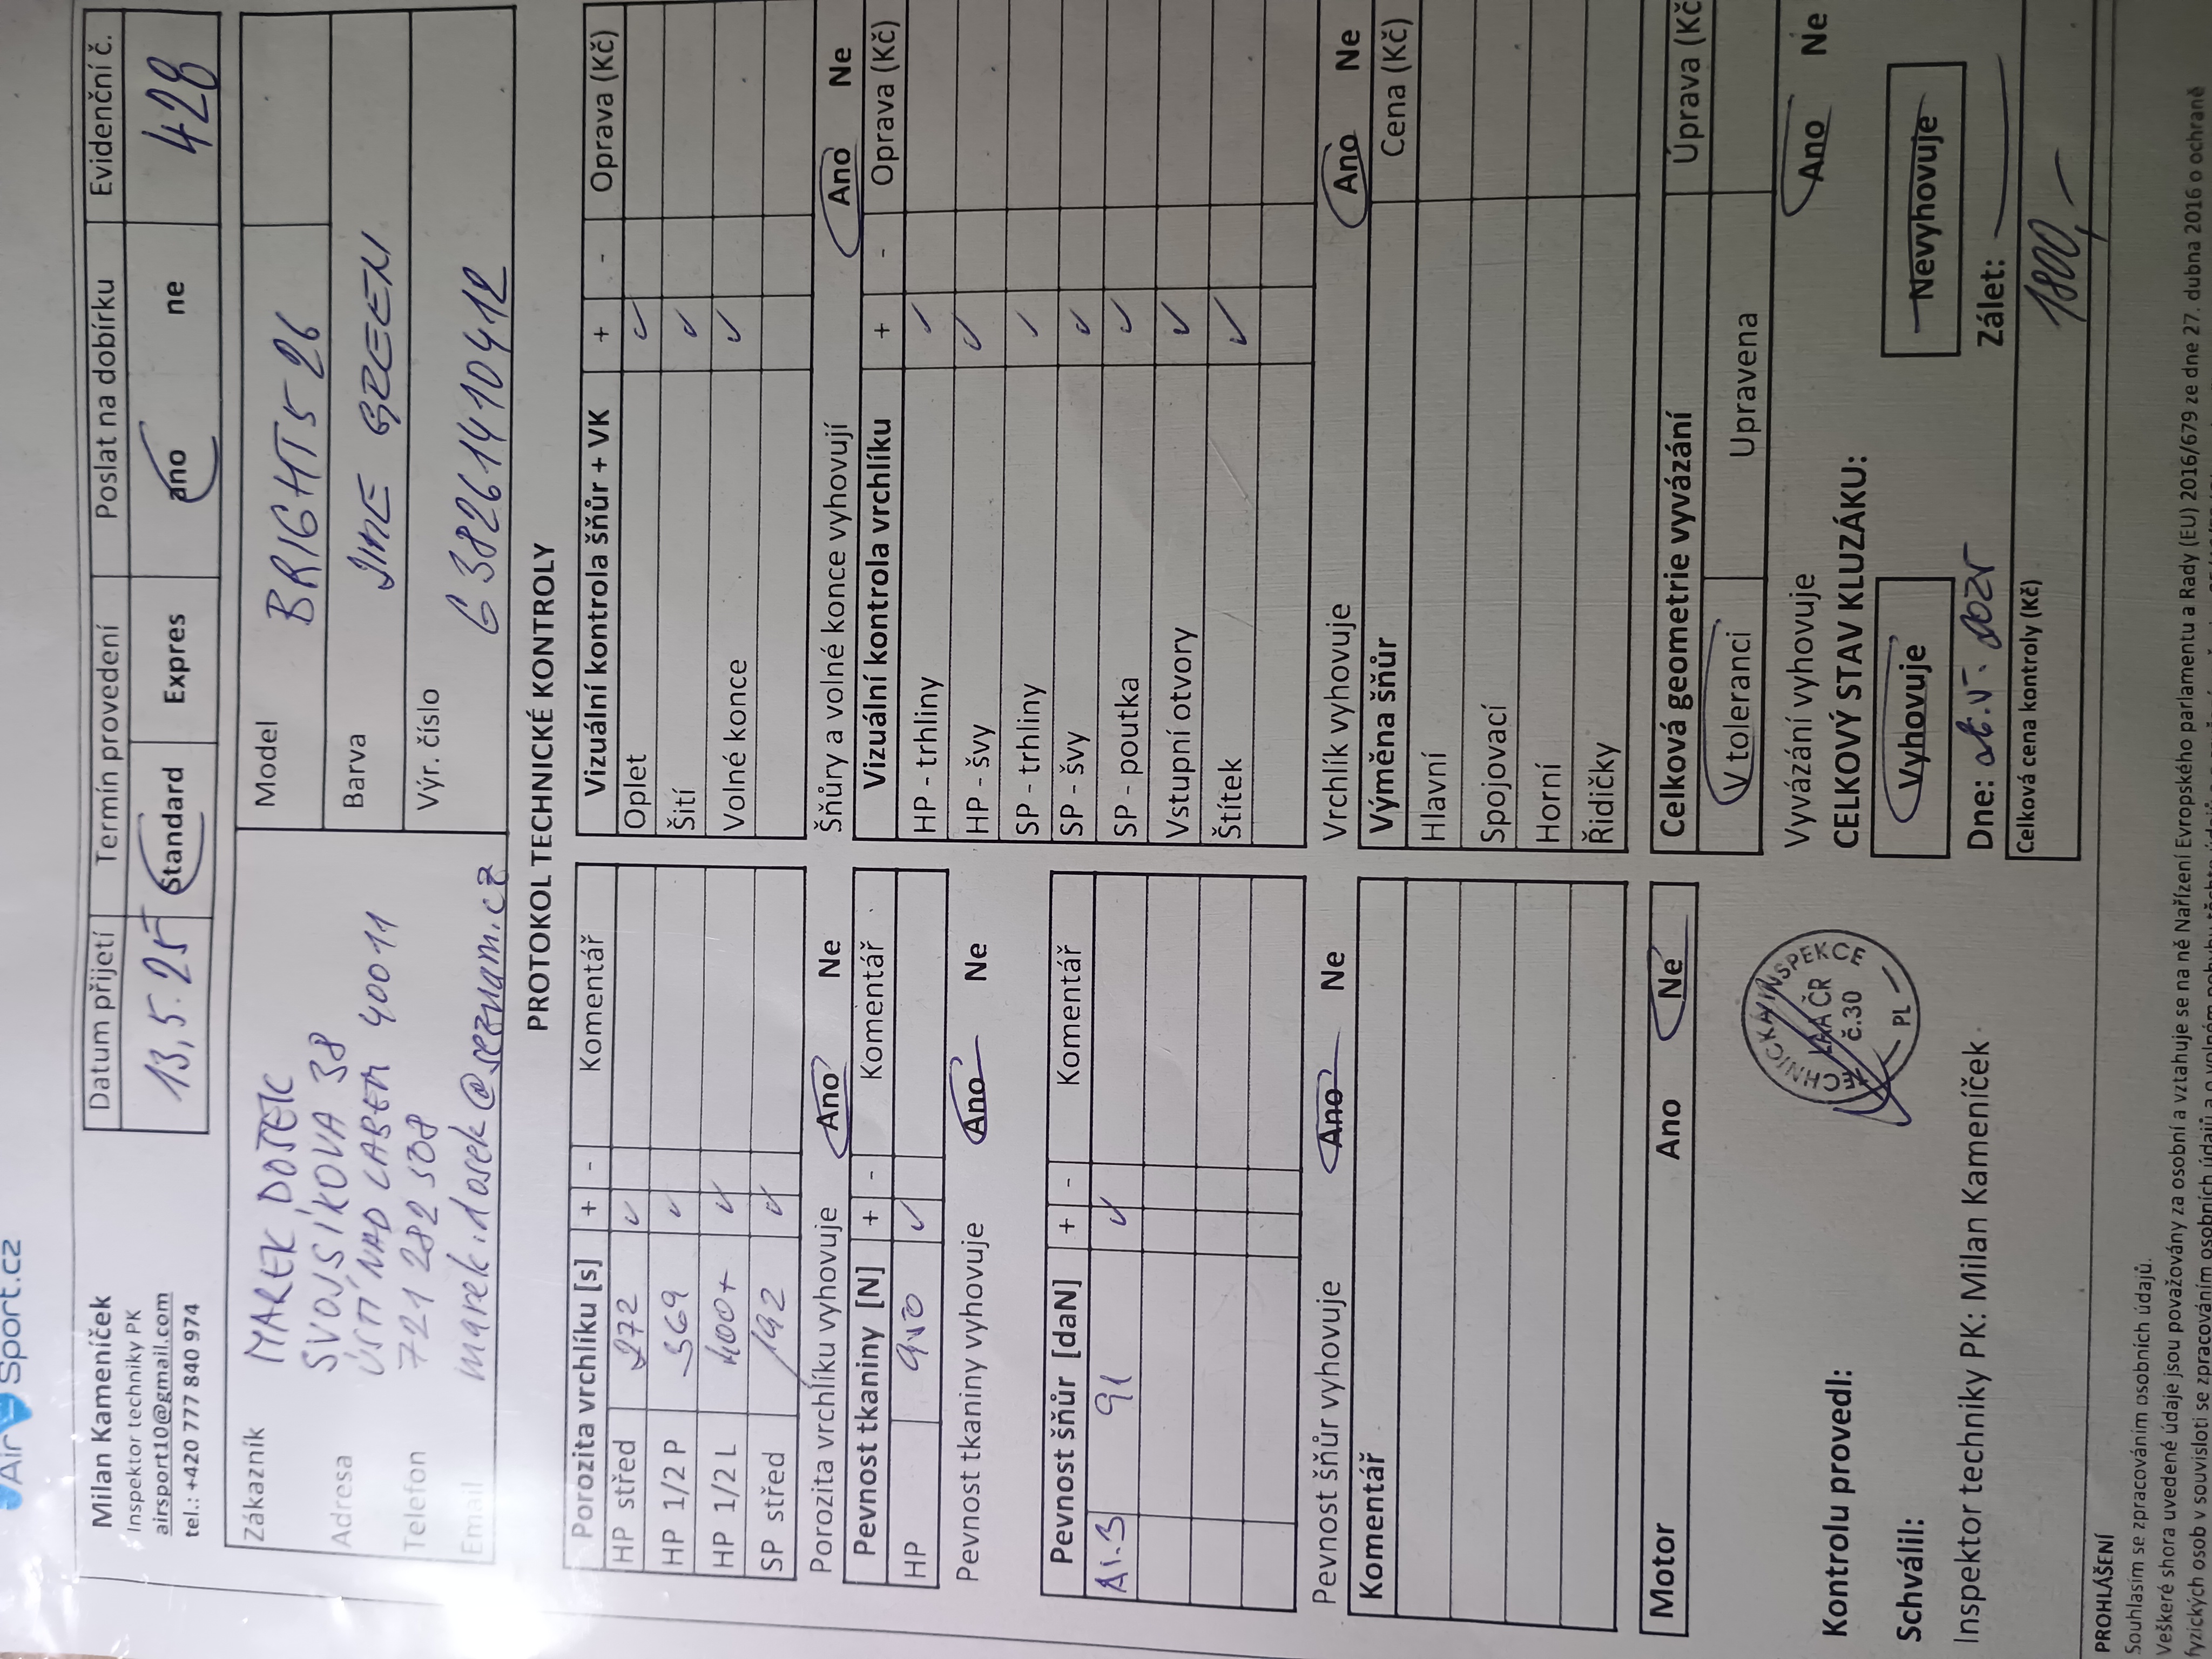 AirSport.cz
Milan Kameníček
Inspektor techniky PK
airsport10@gmail.com
tel.: +420 777 840 974
Datum přijetí Termín provedení Poslat na dobírku Evidenční č.
13,5.25 Standard Expres ano ne 428
Zákazník MAREK DOSEK
Adresa SVOJSÍKOVA 38
ÚSTÍ NAD LABEM 40011
Telefon 721 282 508
Email marek.dosek@seznam.cz
Model BRIGHT5 26
Barva LIME GREEN
Výr. číslo G 3826141 0412
PROTOKOL TECHNICKÉ KONTROLY
Porozita vrchlíku [s] + - Komentář
HP střed 272 ✓
HP 1/2 P 369 ✓
HP 1/2 L 400+ ✓
SP střed 192 ✓
Porozita vrchlíku vyhovuje Ano Ne
Pevnost tkaniny [N] + - Komentář
HP ✓
Pevnost tkaniny vyhovuje Ano Ne
Pevnost šňůr [daN] + - Komentář
91 ✓
Pevnost šňůr vyhovuje Ano Ne
Komentář
Motor Ano Ne
Vizuální kontrola šňůr + VK + - Oprava (Kč)
Oplet ✓
Šití ✓
Volné konce ✓
Šňůry a volné konce vyhovují Ano Ne
Vizuální kontrola vrchlíku + - Oprava (Kč)
HP - trhliny ✓
HP - švy ✓
SP - trhliny ✓
SP - švy ✓
SP - poutka ✓
Vstupní otvory ✓
Štítek ✓
Vrchlík vyhovuje Ano Ne
Výměna šňůr Cena (Kč)
Hlavní
Spojovací
Horní
Řidičky
Celková geometrie vyvázání Úprava (Kč
V toleranci Upravena
Vyvázání vyhovuje Ano Ne
CELKOVÝ STAV KLUZÁKU:
Vyhovuje Nevyhovuje
Dne: Zálet:
Celková cena kontroly (Kč) 1800,-
Kontrolu provedl:
Schválil:
Inspektor techniky PK: Milan Kameníček
TECHNICKÁ INSPEKCE
LAA ČR
č.30
PL
PROHLÁŠENÍ
Souhlasím se zpracováním osobních údajů.
Veškeré shora uvedené údaje jsou považovány za osobní a vztahuje se na ně Nařízení Evropského parlamentu a Rady (EU) 2016/679 ze dne 27. dubna 2016 o ochraně
fyzických osob v souvislosti se zpracováním osobních údajů a o volném pohybu těchto údajů